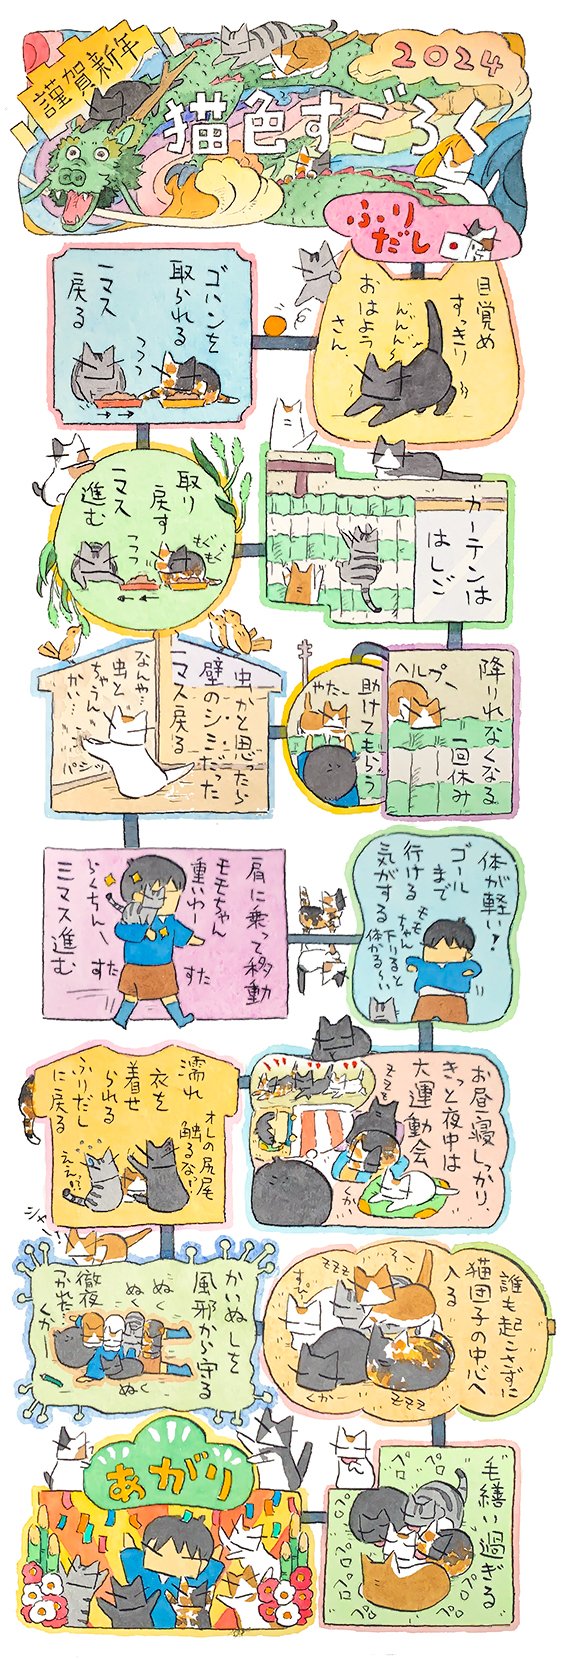 謹賀新年
2024
猫色すごろく
ふり
だし
目覚め
すっきり
んんん〜
おはよう
さん。
ゴハンを
取られる
一マス
戻る
つつつ
取り
戻す
一マス
進む
つつつ
もぐもぐ
カーテンは
はしご
降りれなくなる
一回休み
ヘルプ〜
助けてもらう
やたー
虫かと思ったら
壁のシミだった
一マス戻る
なんや…
虫と
ちゃうん
かい…
パシッ
肩に乗って移動
モモちゃん
重いわー
らくちん〜
三マス進む
すた
すた
体が軽い!
ゴール
まで
行ける
気がする
ももちゃん
下りると
体かる〜い
お昼寝しっかり、
きっと夜中は
大運動会
zzz
くかー
濡れ
衣を
着せ
られる
ふりだし
に戻る
オレの尻尾
触るな!
ええっ!?
シャー!
かいぬしを
風邪から守る
ぬく
ぬく
ぬく
徹夜
つかれた
くか
誰も起こさずに
猫団子の中心へ
入る
zzz
くかー
zzz
毛繕い過ぎる
ペロ
ペロ
ペロ
ペロペロ
ペロ
ペロ
あがり